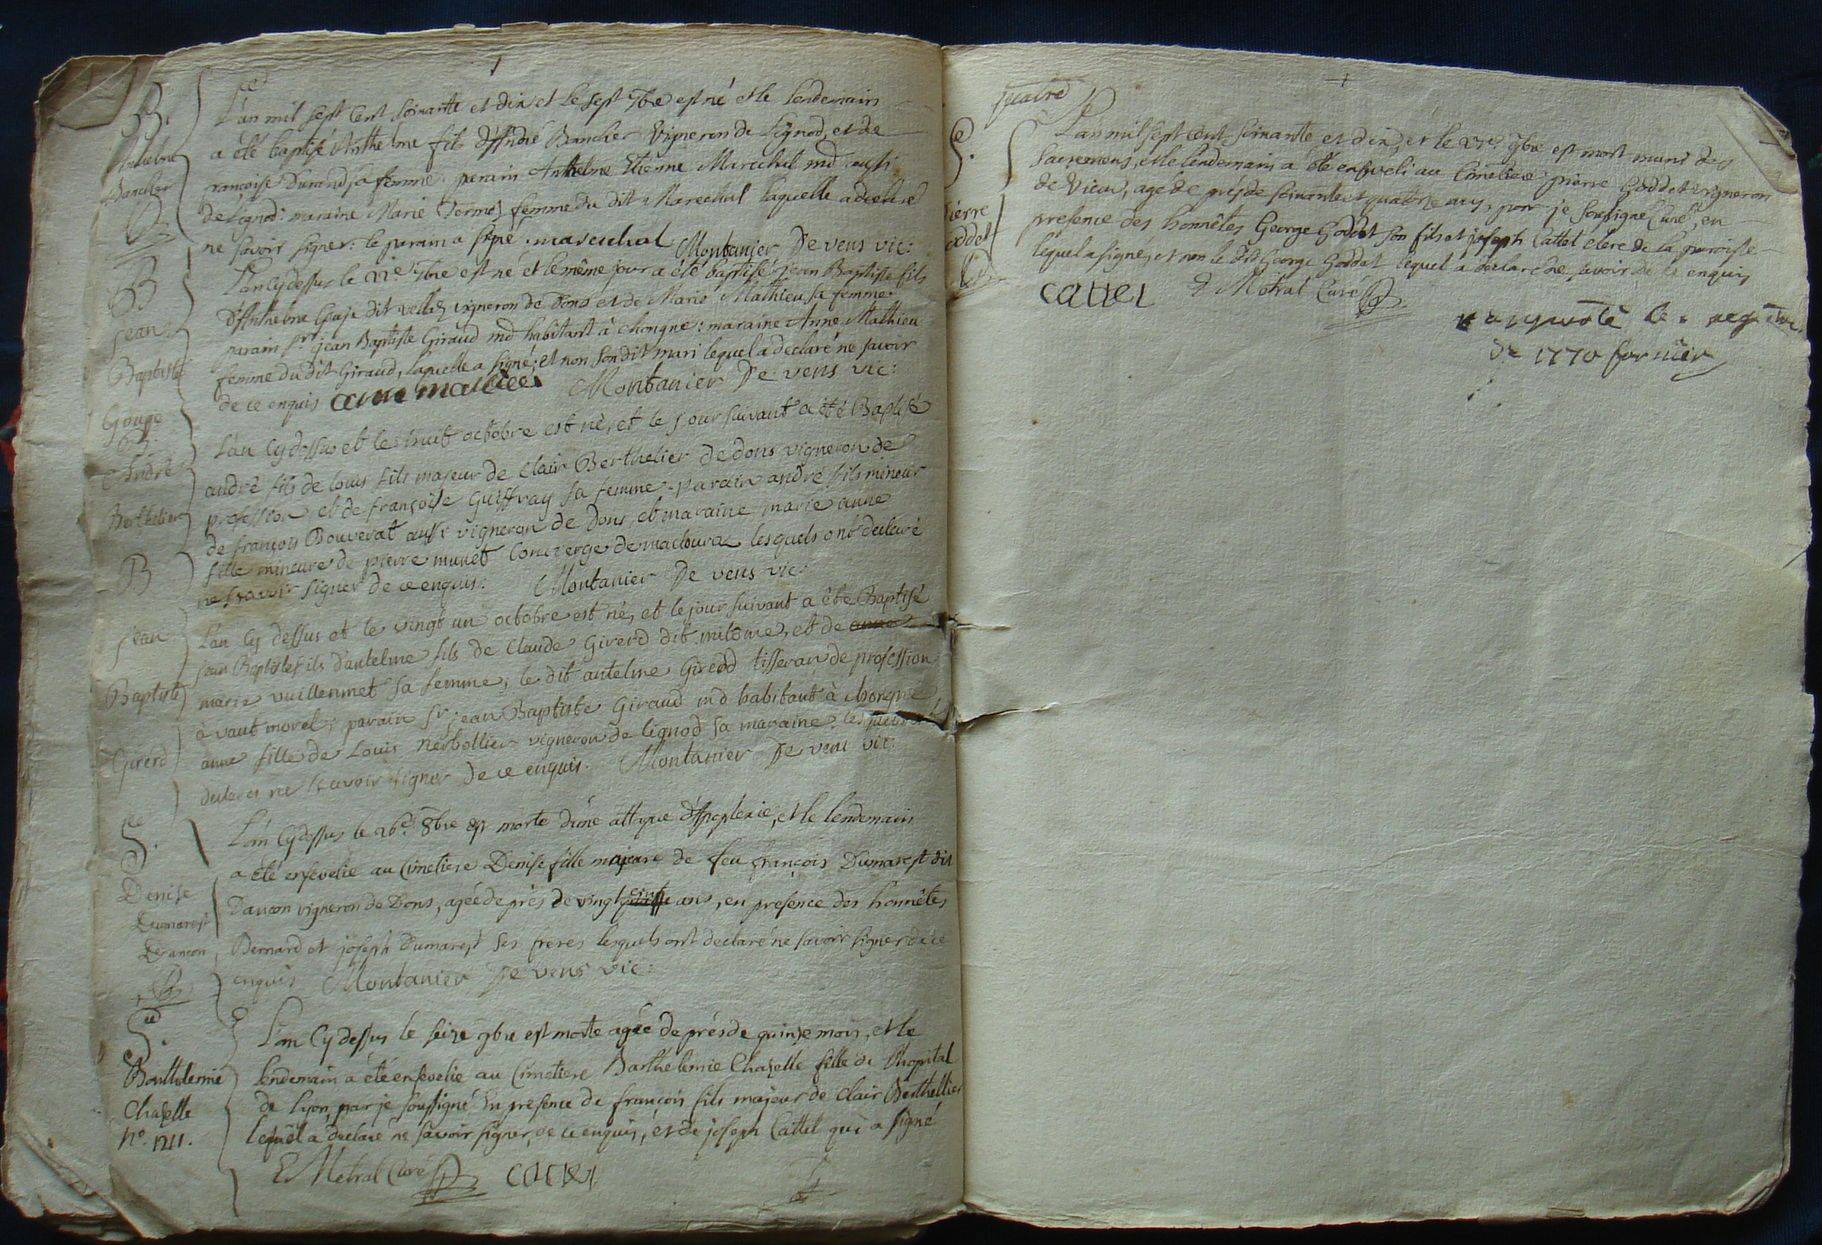 B.
Anthelme
Bancher
L'an mil sept cent soixante et dix et le sept 7bre est né et le lendemain
a été baptisé Anthelme fils d'André Bancher vigneron de Lignod, et de
françoise Durand sa femme. parain Anthelme Etienne Marechal md aussi
de Lignod: maraine Marie femme du dit Marechal laquelle a declaré
ne savoir signer: le parain a signé. mareschal Montanier De vens vic:
B
Jean
Baptiste
Gouje
L'an cy dessus le 7bre est né et le même jour a été baptisé jean Baptiste fils
d'Anthelme Gouje dit vellez vigneron de Dons et de Marie Mathieu sa femme
parain sr. jean Baptiste Giraud md habitant à chongne: maraine Anne Mathieu
femme du dit Giraud, laquelle a signé, et non son dit mari lequel a declaré ne savoir
de ce enquis anne mathieu Montanier De vens vic:
B.
André
Berthelier
L'an cy dessus et le huit octobre est né, et le jour suivant a été Baptisé
andré fils de louis fils majeur de clair Berthelier de dons vigneron de
profession et de françoise Guiffray sa femme. parain andré fils mineur
de françois Bouverat aussi vigneron de Dons, et maraine marie anne
fille mineure de pierre munet Concierge de lesquels ont declaré
ne sçavoir signer de ce enquis. Montanier De vens vic:
B
Jean
Baptiste
Girerd
L'an cy dessus et le vingt un octobre est né, et le jour suivant a été Baptisé
jean Baptiste fils d'antelme fils de Claude Girerd dit milome, et de anne
marie vuillermet sa femme, le dit antelme Girerd tisseran de profession
à vaut morel, parain sr jean Baptiste Giraud md habitant à chongne
anne fille de Louis Berthollier vigneron de lignod sa maraine. lesquels ont
declarés ne sçavoir signer de ce enquis. Montanier De vens vic:
S.
Denise
Dumarest
Dançon
L'an cy dessus le 26e. 8bre est morte d'une attaque d'Apoplexie, et le lendemain
a été ensevelie au cimetiere Denise fille majeure de feu françois Dumarest dit
Dancon vigneron de Dons, agée de près de vingt cinq ans, en presence des honnêtes
Bernard et joseph Dumarest ses freres lesquels ont declaré ne savoir signer de ce
enquis Montanier De vens vic:
S.
Barthelemie
Chaselle
no. 1211.
L'an cy dessus le seize 9bre est morte agée de près de quinze mois, et le
lendemain a été ensevelie au cimetiere Barthelemie Chaselle fille de l'hopital
de Lyon, par je soussigné En presence de françois fils majeur de clair Berthellier
lequel a declaré ne savoir signer, de ce enquis, et de joseph Cattel qui a signé
E Metral Curé cattel
quatre
S.
Pierre
Goddet
L'an mil sept cent soixante et dix, et le 9bre est mort muni des
Sacremens, et le lendemain a été enseveli au Cimetiere pierre Goddet vigneron
de Vieu, age de près de soixante et quatre ans, par je soussigné Curé, en
presence des honnêtes George Goddet son fils et joseph Cattel clerc de la paroisse
lequel a signé, et non le dit George Goddet lequel a declaré ne savoir de ce enquis
cattel E Metral Curé
registre
de 1770